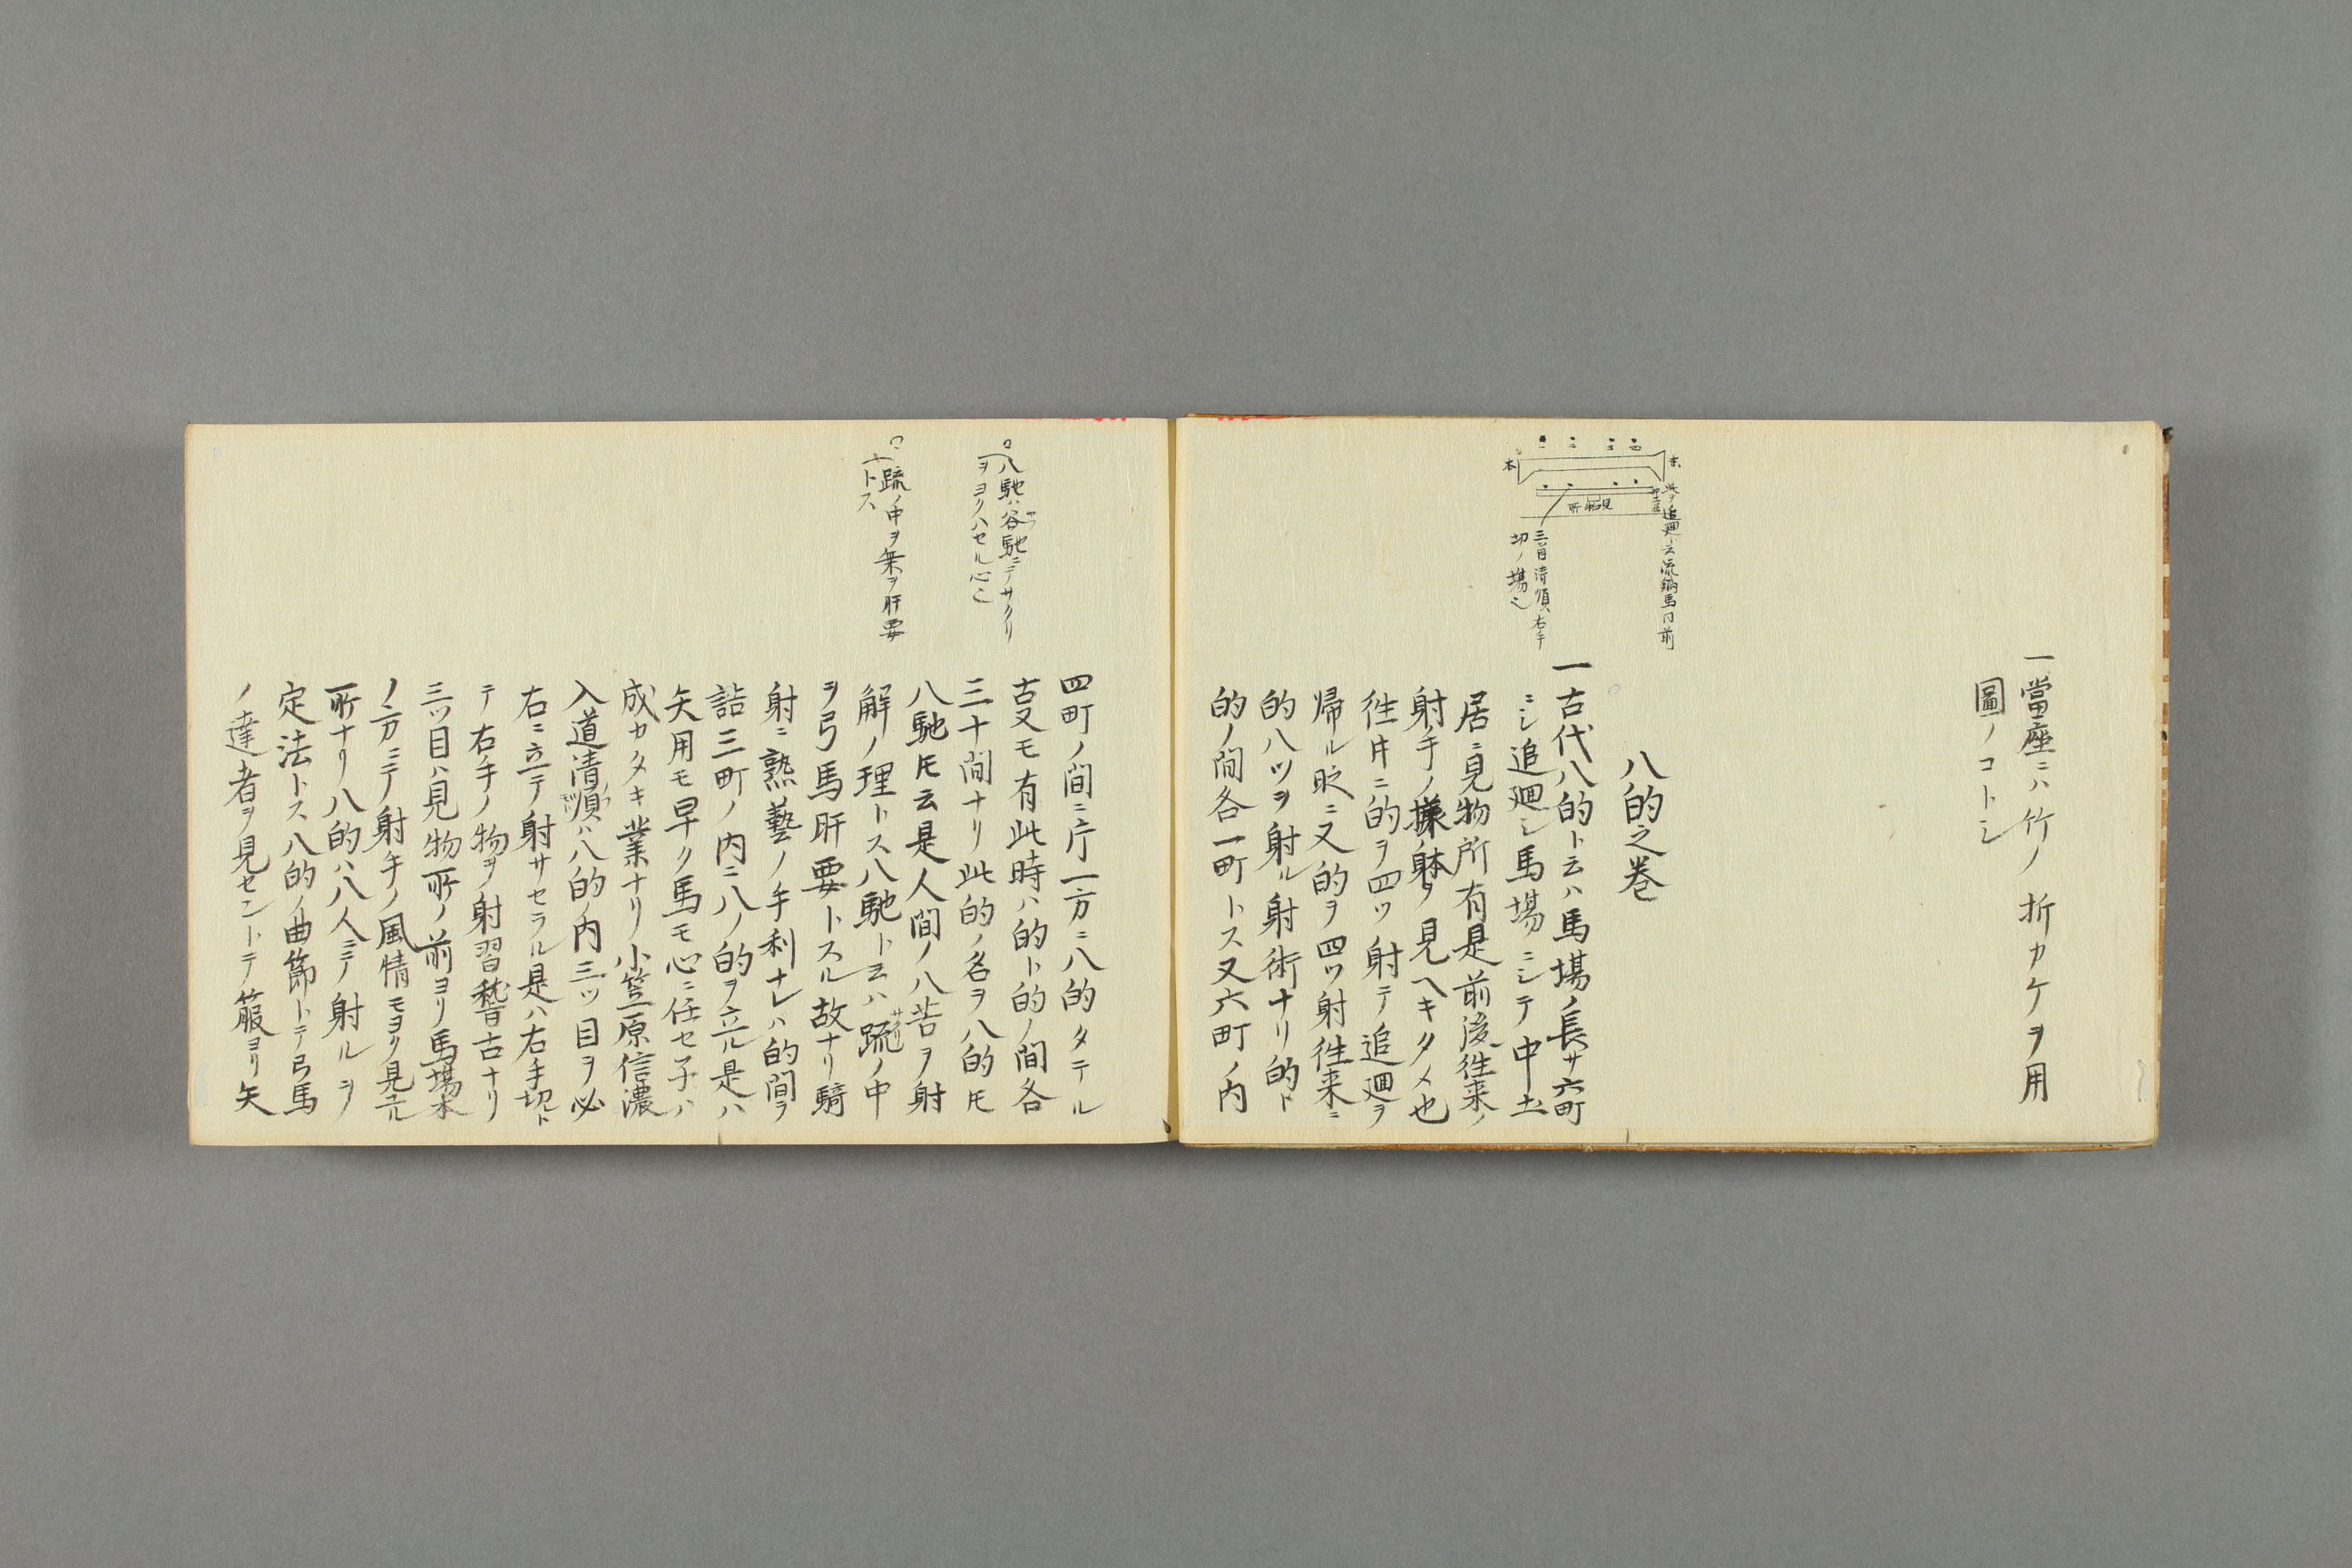 一當座ニハ竹ノ折カケヲ用
圖ノコトシ
八的之巻
末
本
見物所
此ヲ追廻ト云流鏑馬同前
三首清順右手
切ノ場也
一古代八的ト云ハ馬場ノ長サ六町
ニシ追廻シ馬場ニシテ中土
居ニ見物所有是前後往来ノ
射手ノ様躰ヲ見ヘキタメ也
往片ニ的ヲ四ツ射テ追廻ヲ
帰ル時ニ又的ヲ四ツ射往来ニ
的八ツヲ射ル射術ナリ的ト
的ノ間各一町トス又六町ノ内
四町ノ間ニ片一方ニ八的タテル
古叓モ有此時ハ的ト的ノ間各
三十間ナリ此的ノ名ヲ八的𪜈
八馳𪜈云是人間ノ八苦ヲ射
解ノ理トス八馳ト云ハ䟽ノ中
ヲ弓馬肝要トスル故ナリ騎
射ニ熟藝ノ手利ナレハ的間ヲ
詰三町ノ内ニ八ノ的ヲ立ル是ハ
矢用モ早ク馬モ心ニ任セ子ハ
成カタキ業ナリ小笠原信濃
入道清順ハ八的ノ内三ツ目ヲ必
右ニ立テ射サセラル是ハ右手切ト
テ右手ノ物ヲ射習稽古ナリ
三ツ目ハ見物所ノ前ヨリ馬場本
ノ方ニテ射手ノ風情モヨク見ル
所ナリ八的ハ八人ニテ射ルヲ
定法トス八的ノ曲節トテ弓馬
ノ達者ヲ見セントテ箙ヨリ矢
八馳ハ谷馳ニテサクリ
ヲヨクハセル心也
䟽ノ中ヲ乗ヲ肝要
トス